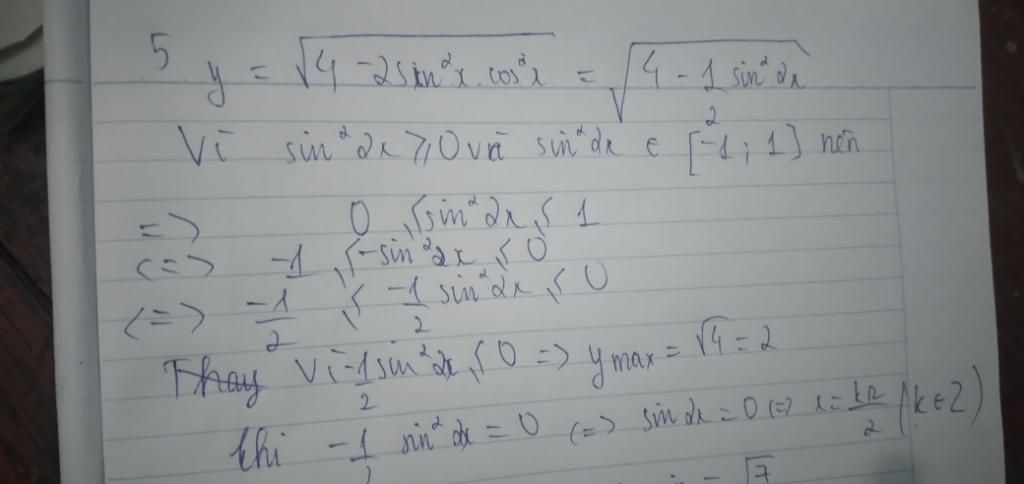 5
y = √(4 - 2sin²x.cos²x) = √(4 - 1/2 sin²2x)
Vì sin²2x ⩾ 0 và sin²2x ∈ [-1; 1] nên
=> 0 ⩽ sin²2x ⩽ 1
<=> -1 ⩽ -sin²2x ⩽ 0
<=> -1/2 ⩽ -1/2 sin²2x ⩽ 0
Thay Vì -1/2 sin²2x ⩽ 0 => ymax = √4 = 2
khi -1/2 sin²2x = 0 <=> sin2x = 0 <=> x = kπ/2 (k ∈ Z)
= √7